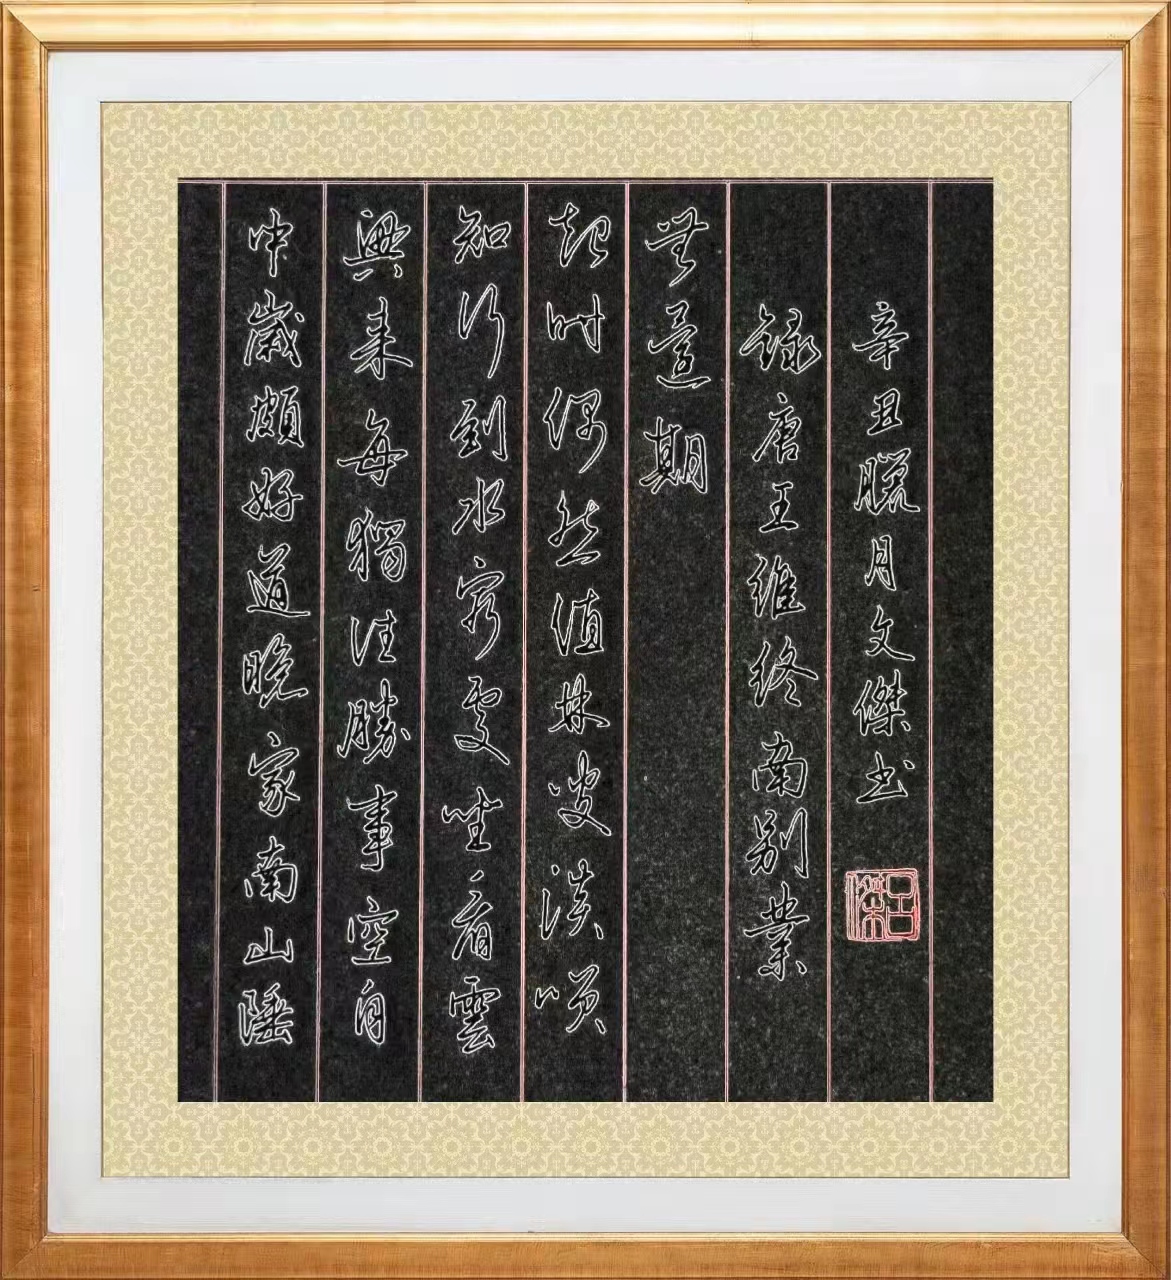 中歲頗好道晚家南山陲
興來每獨往勝事空自
知行到水窮處坐看雲
起時偶然值林叟談咲
無還期
錄唐王維終南別業
辛丑臘月文傑书